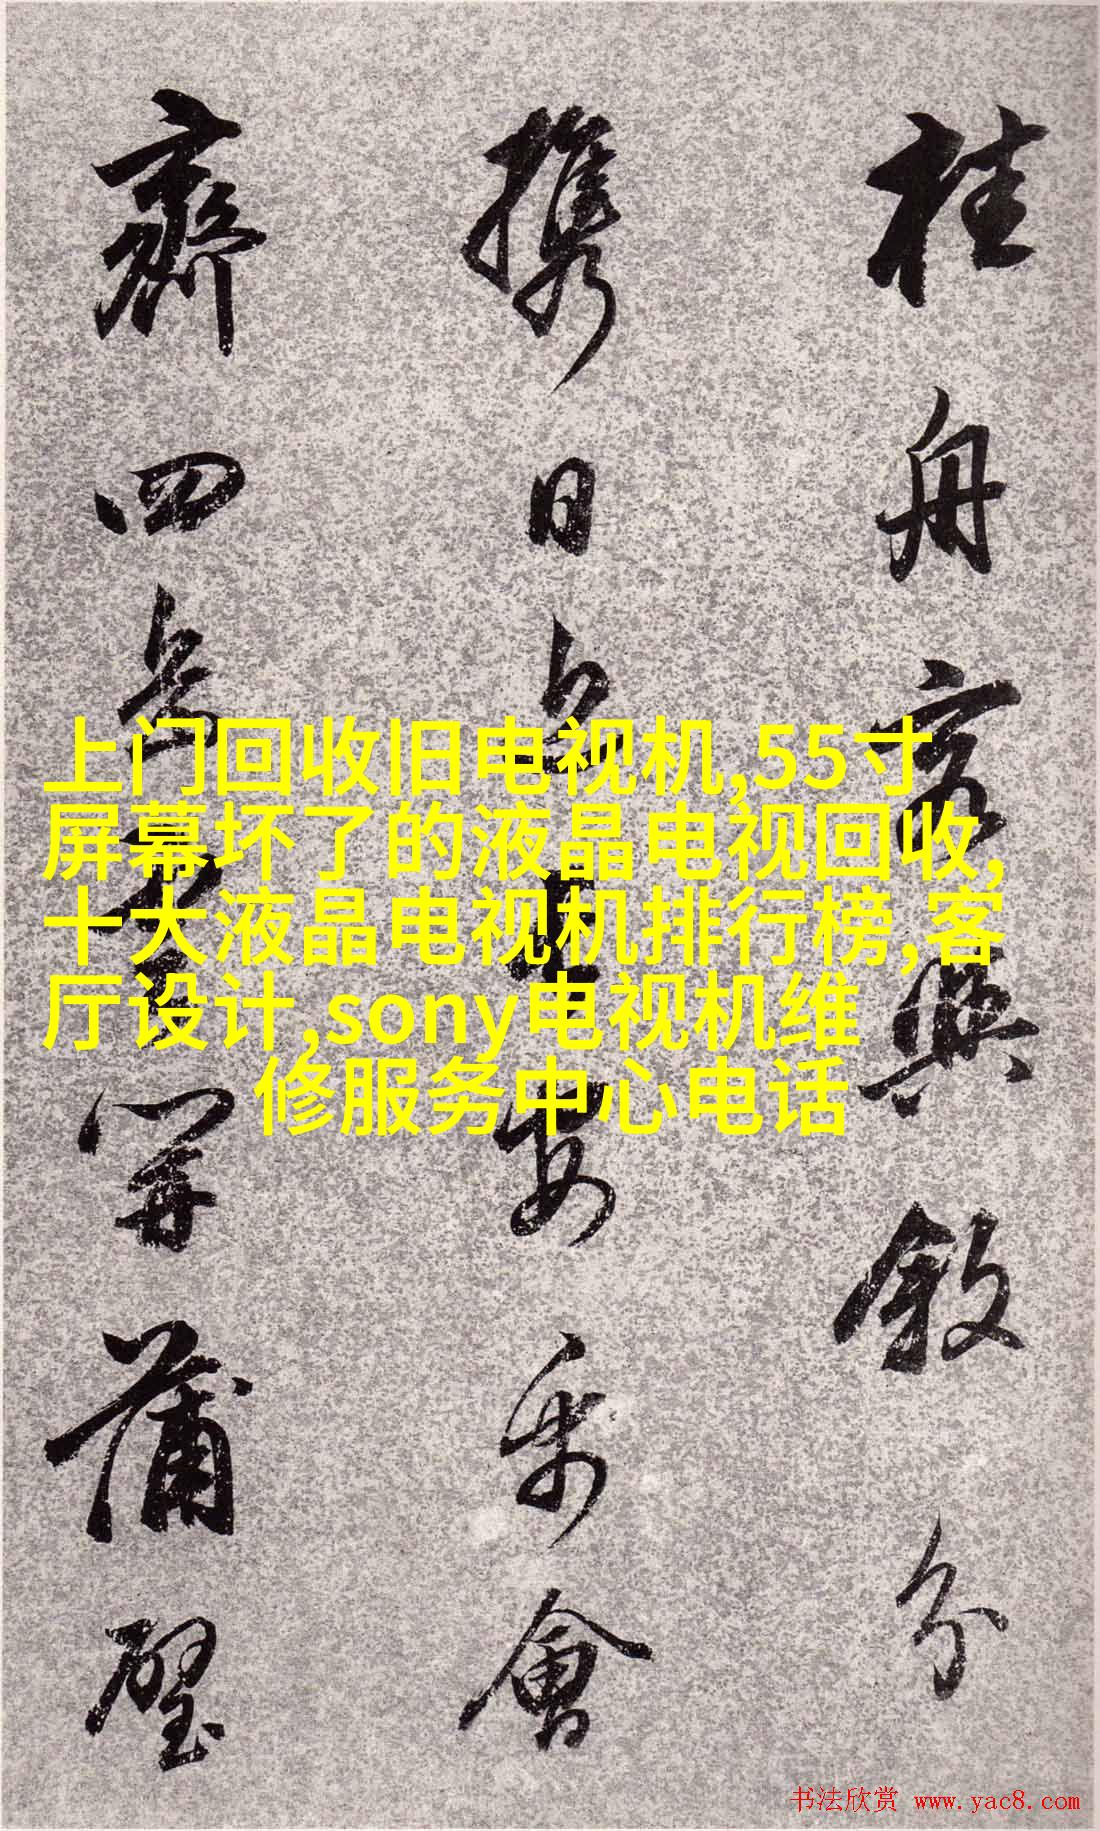 桂舟寂興敘分
攜日
安乐會
齊四
開蒲璧
上门回收旧电视机,55寸
屏幕坏了的液晶电视回收,
十大液晶电视机排行榜,客
厅设计,sony电视机维
修服务中心电话
书法欣赏 www.yac8.com